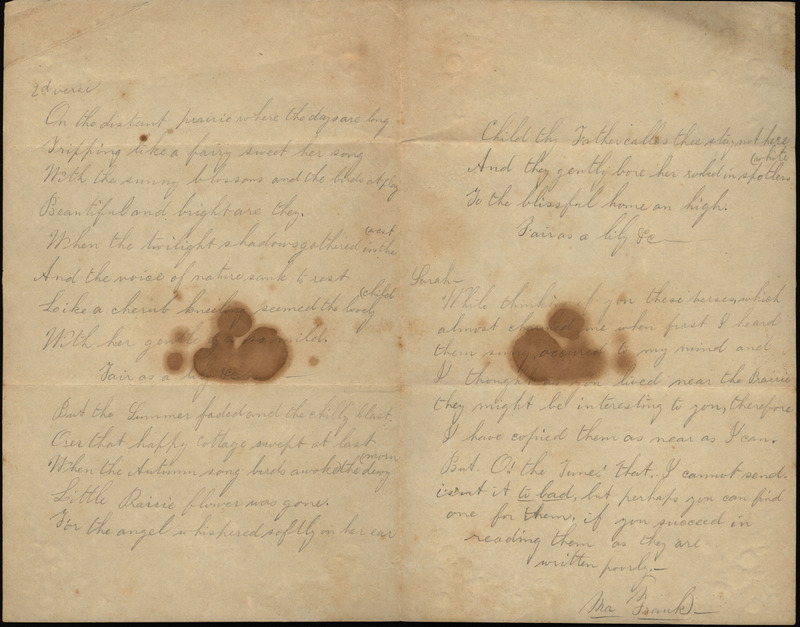 2d verse
On the distant prairie where the days are long
Tripping like a fairy sweet her song
With the sunny blossoms and the birds at play
Beautiful and bright are they.
When the twilight shadows gathered in the west
And the voice of nature sank to rest
Like a cherub kneeling seemed the lovely child
With her gentle so mild.
Fair as a lily &c
But the Summer faded and the chilly blast
Oer that happy cottage swept at last
When the Autumn song birds awoke the dewy morn
Little Prairie flower was gone.
For the angel whispered softly in her ear
Child thy Father calls thee stay not here
And they gently bore her robed in spotless white
To the blissful home on high.
Fair as a lily &c
Sarah
While thinking of you these verses, which
almost charmed me when first I heard
them sung, occured to my mind and
I thought as you lived near the Prairie
they might be interesting to you, therefore
I have copied them as near as I can.
But O! the Tune! that I cannot send.
isnt it to bad, but perhaps you can find
one for them, if you succeed in
reading them as they are
written poorly.
Frank